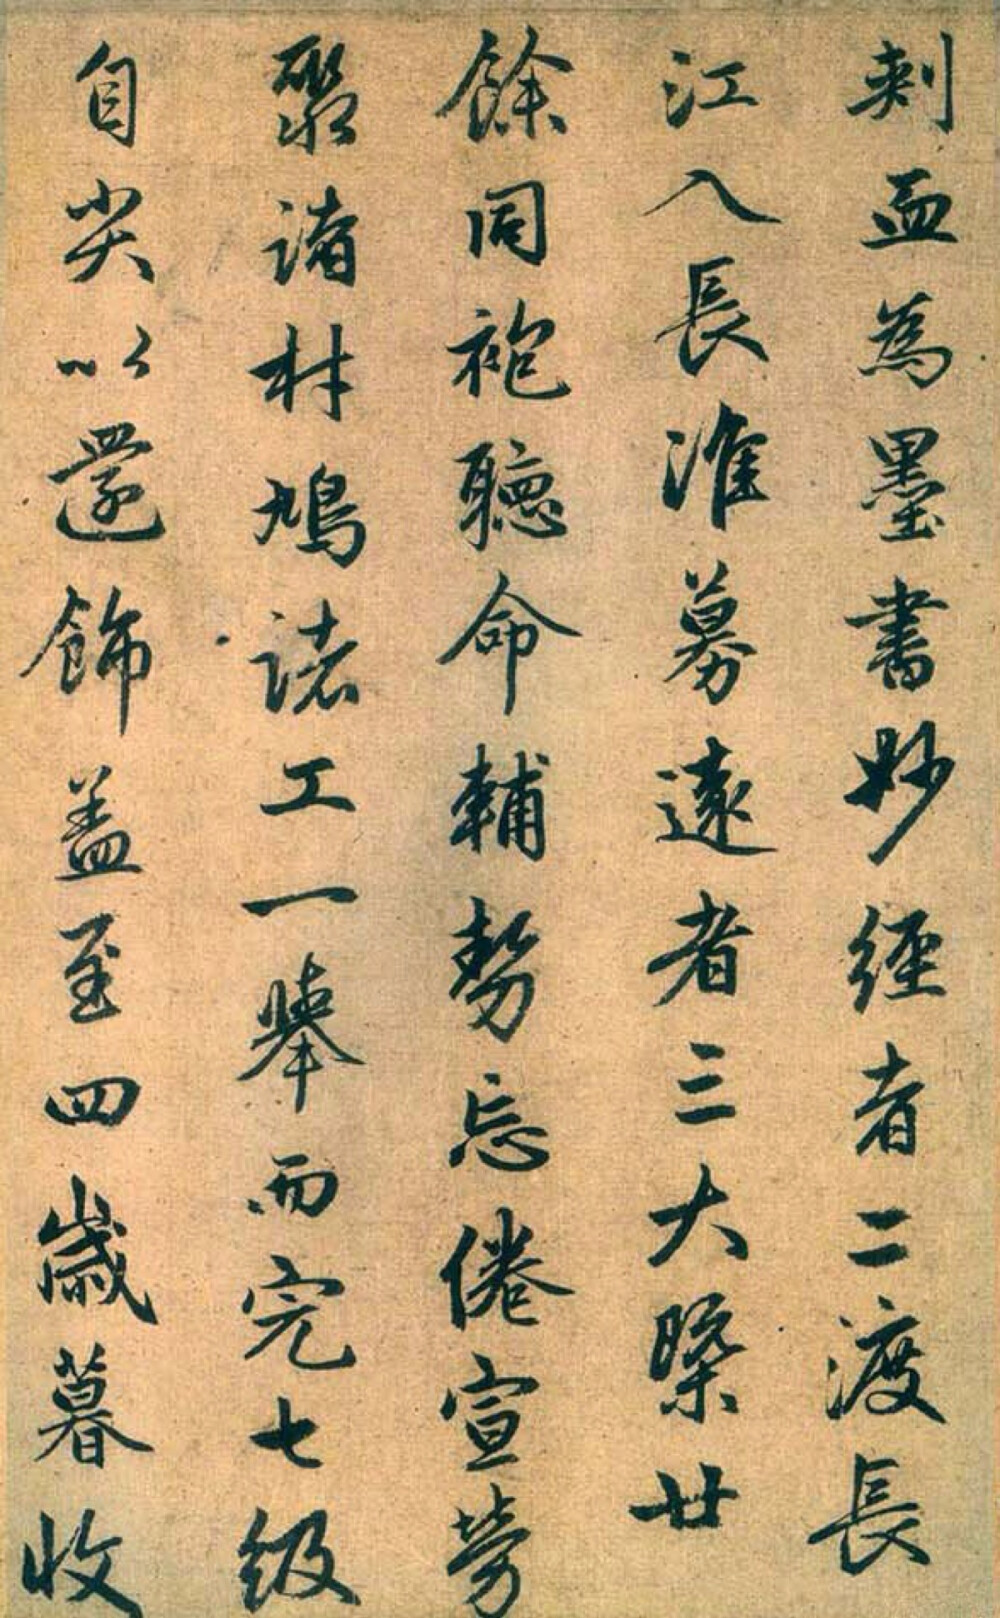 刺血為墨書妙經者二渡長
江入長淮募遠者三大槩廿
餘同袍聽命輔勢忘倦宣勞
聚諸材鳩諸工一舉而完七級
自尖以還飾盖至四歲暮收